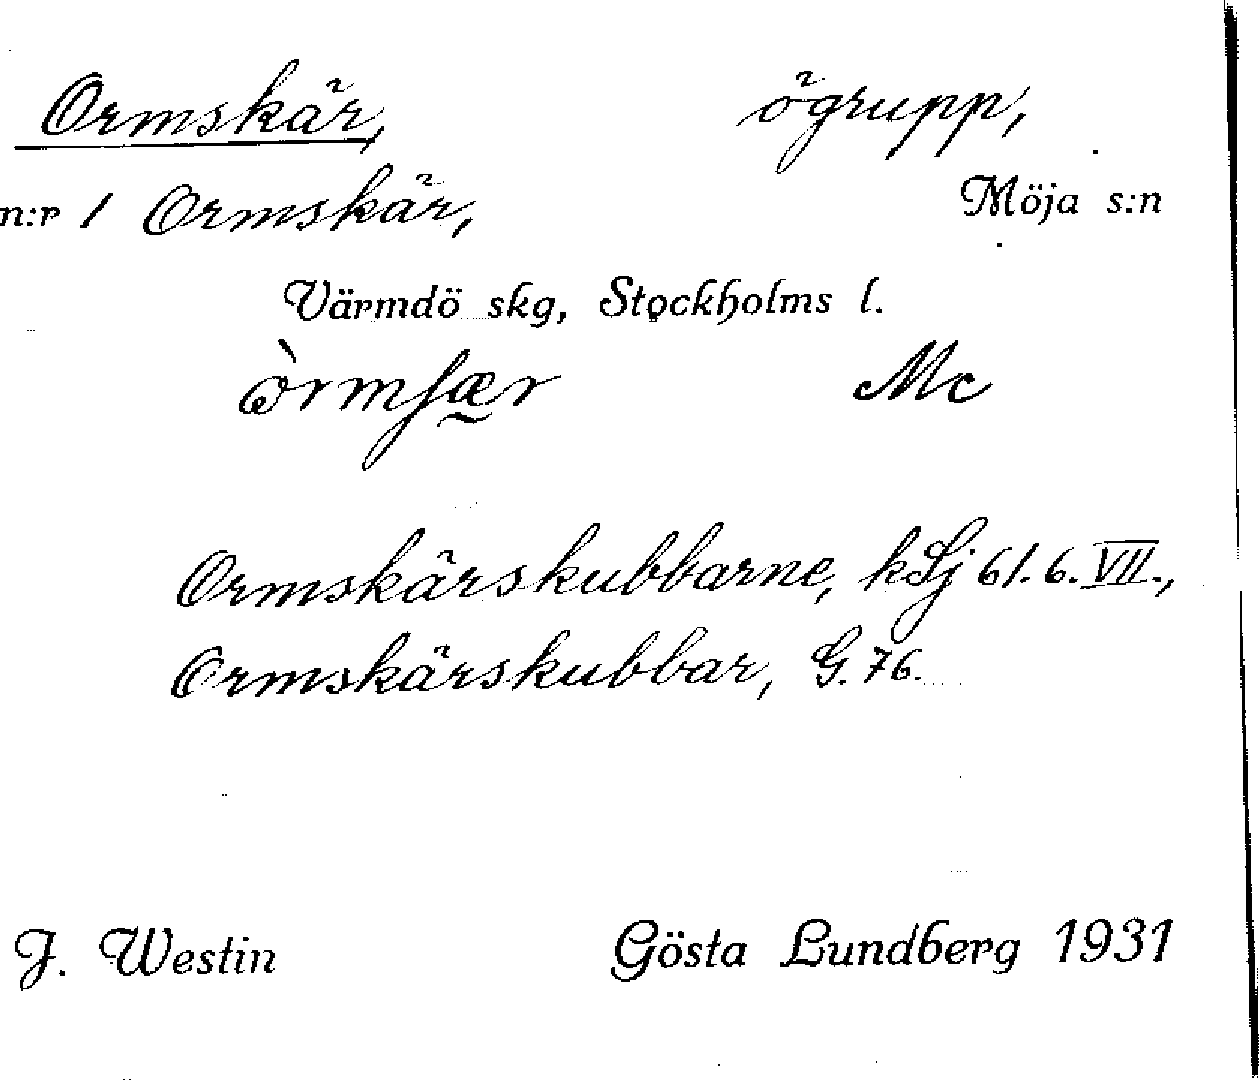 Ormskär, ögrupp,
n:r 1 Ormskär, Möja s:n
Värmdö skg, Stockholms l.
òrmʃær Mc
Ormskärskubbarne, kSj 61.6.VII.,
Ormskärskubbar, G. 76.
J. Westin Gösta Lundberg 1931